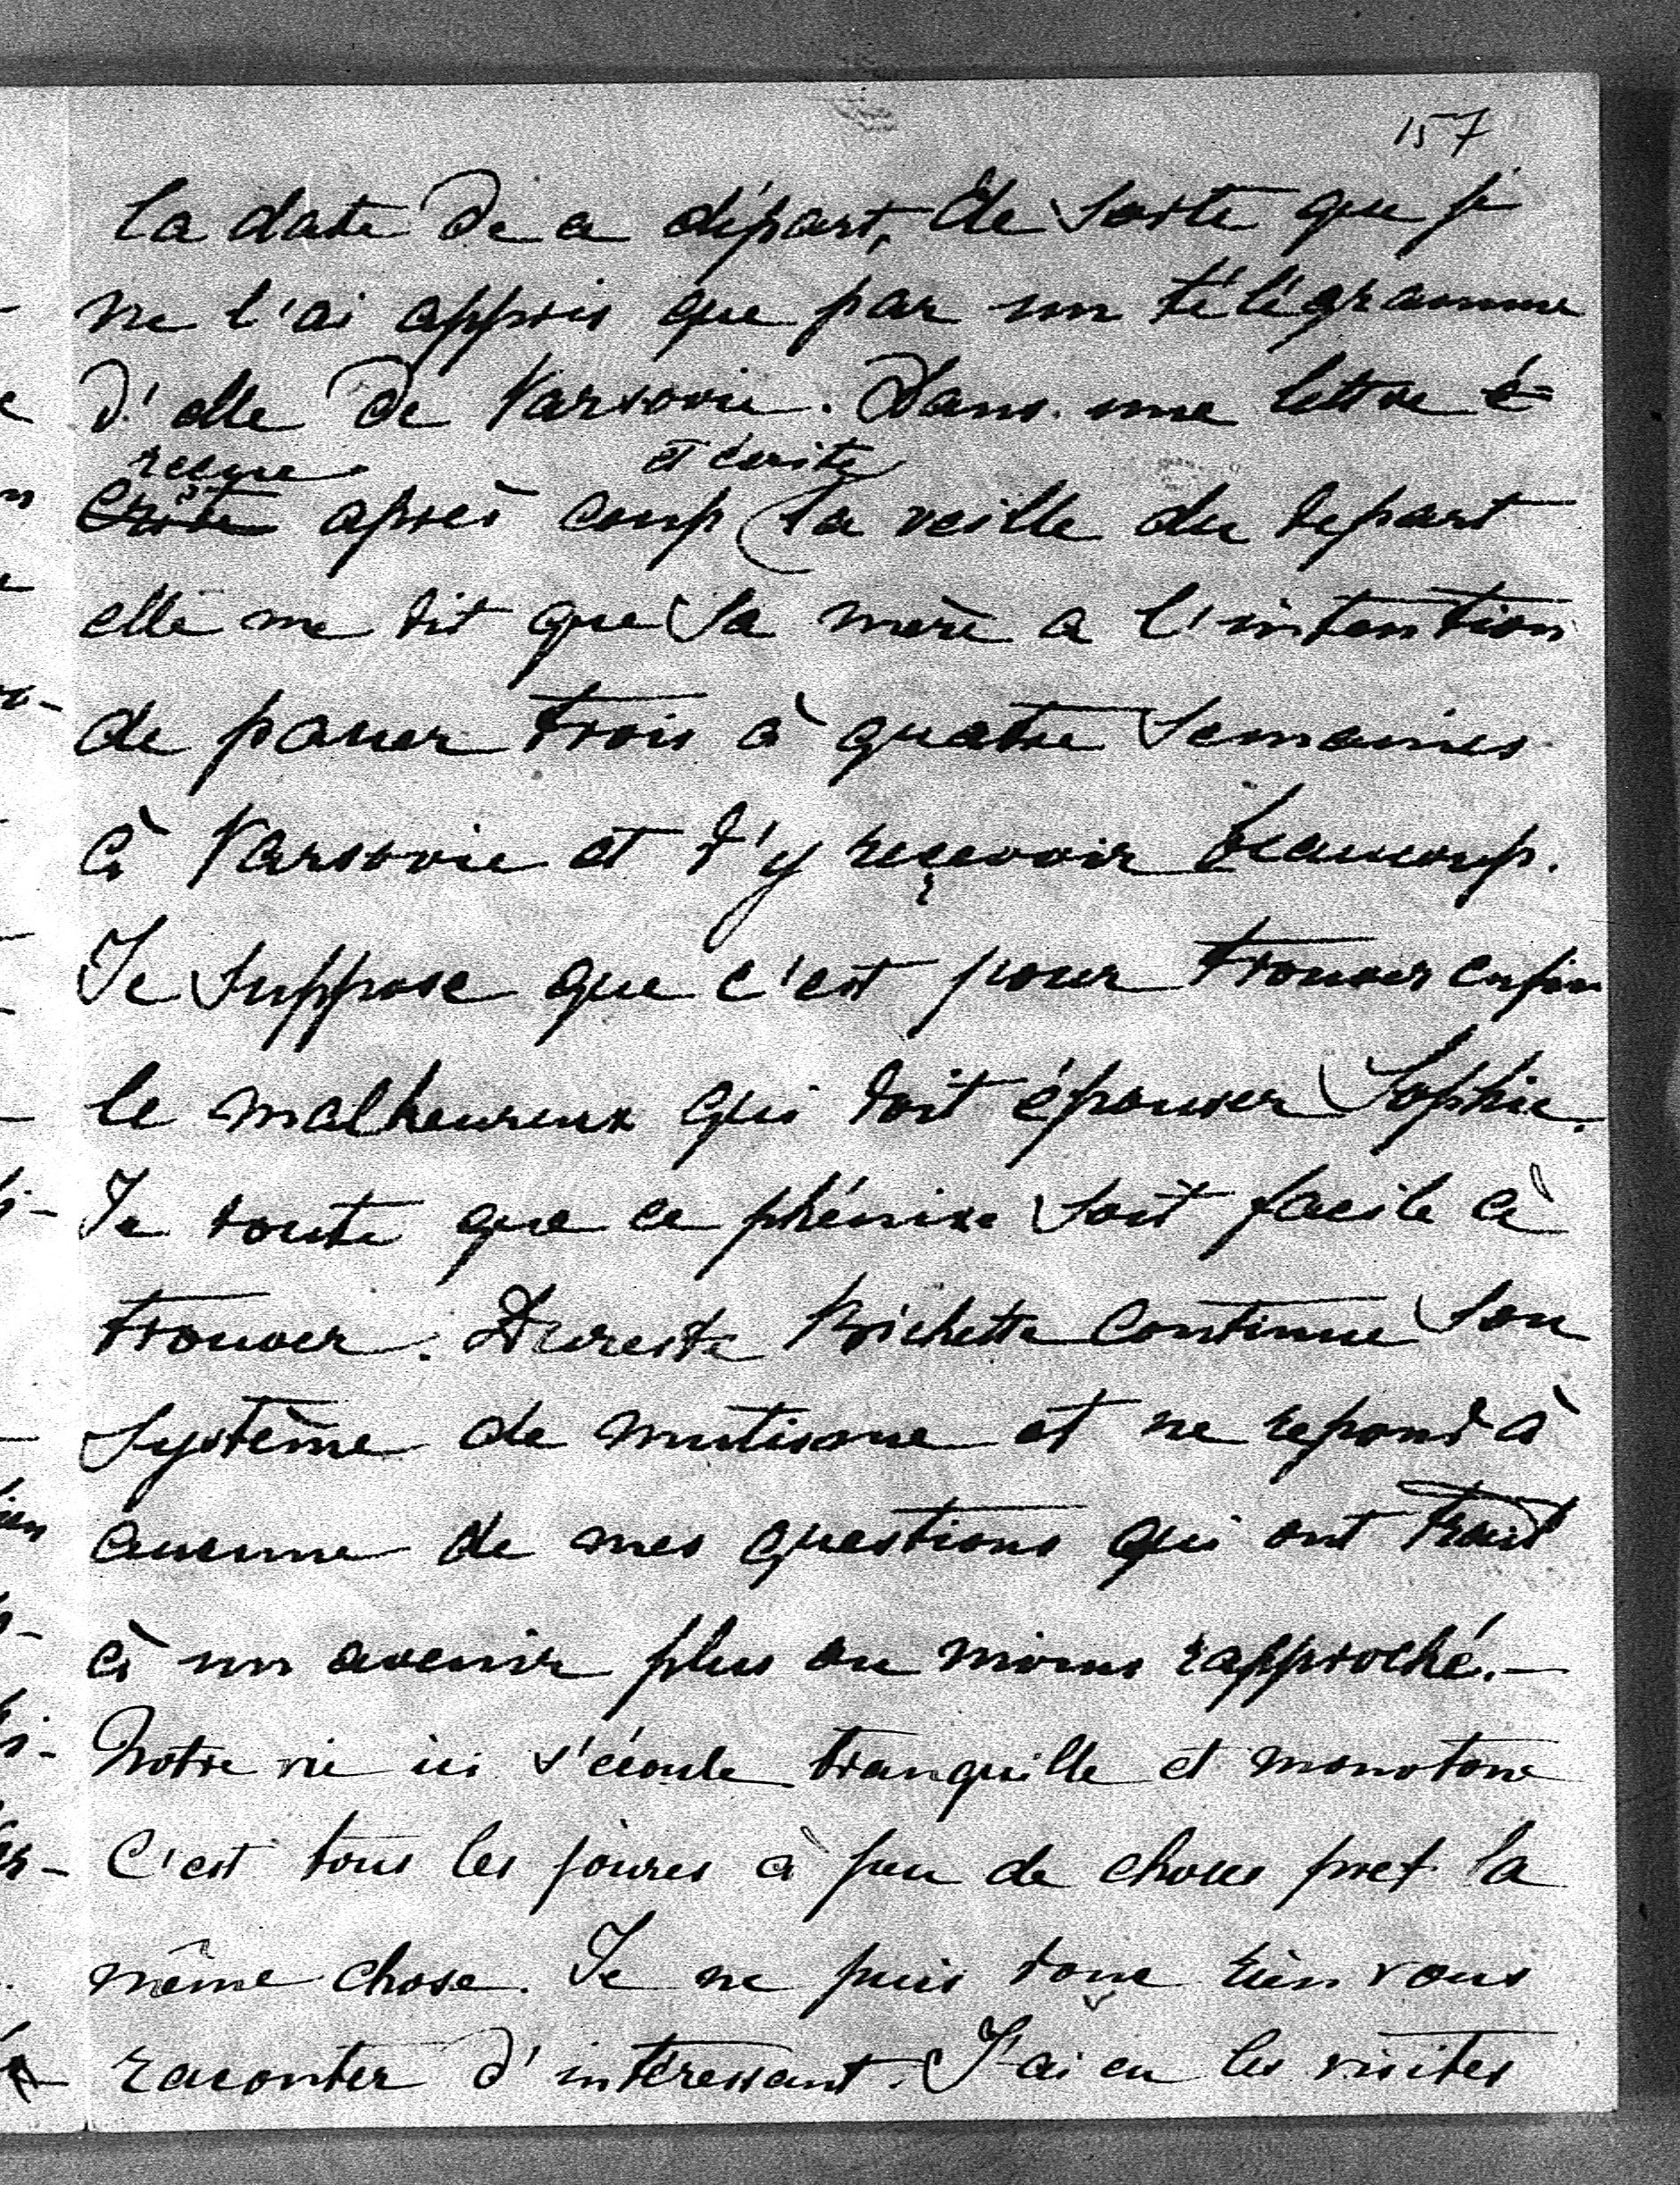 157
la date de ce départ, de sorte que je
ne l'ai appris que par un télégramme
d'elle de Varsovie. Dans une lettre é=
reçue et écrite
crite après coup (la veille du depart
elle me dit que sa mère a l'intention
de passer trois à quatre semaines
à Varsovie et d'y reçevoir beaucoup.
Je suppose que c'est pour trouver enfin
le malheureux qui doit épouser Sophie.
Je doute que ce phénixe soit facile à
trouver. Dureste Bichette continue son
système de mutisme et ne repond à
aucune de mes questions qui ont trait
à un avenir plus ou moins rapproché.—
Notre vie ici s'écoule tranquille et monotone
C'est tous les joures à peu de choses pret la
même chose. Je ne puis donc rien vous
raconter d'intéressant. J'ai eu les visites